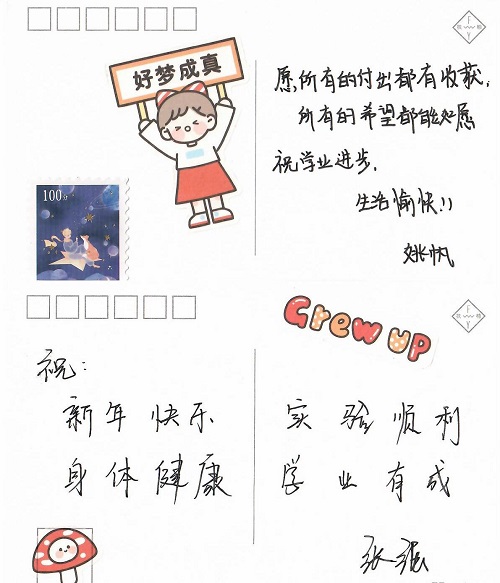 好梦成真
100分
愿所有的付出都有收获,
所有的希望都能如愿
祝学业进步,
生活愉快!!
姚帆
Grew up
祝:
新年快乐
身体健康
实验顺利
学业有成
张强